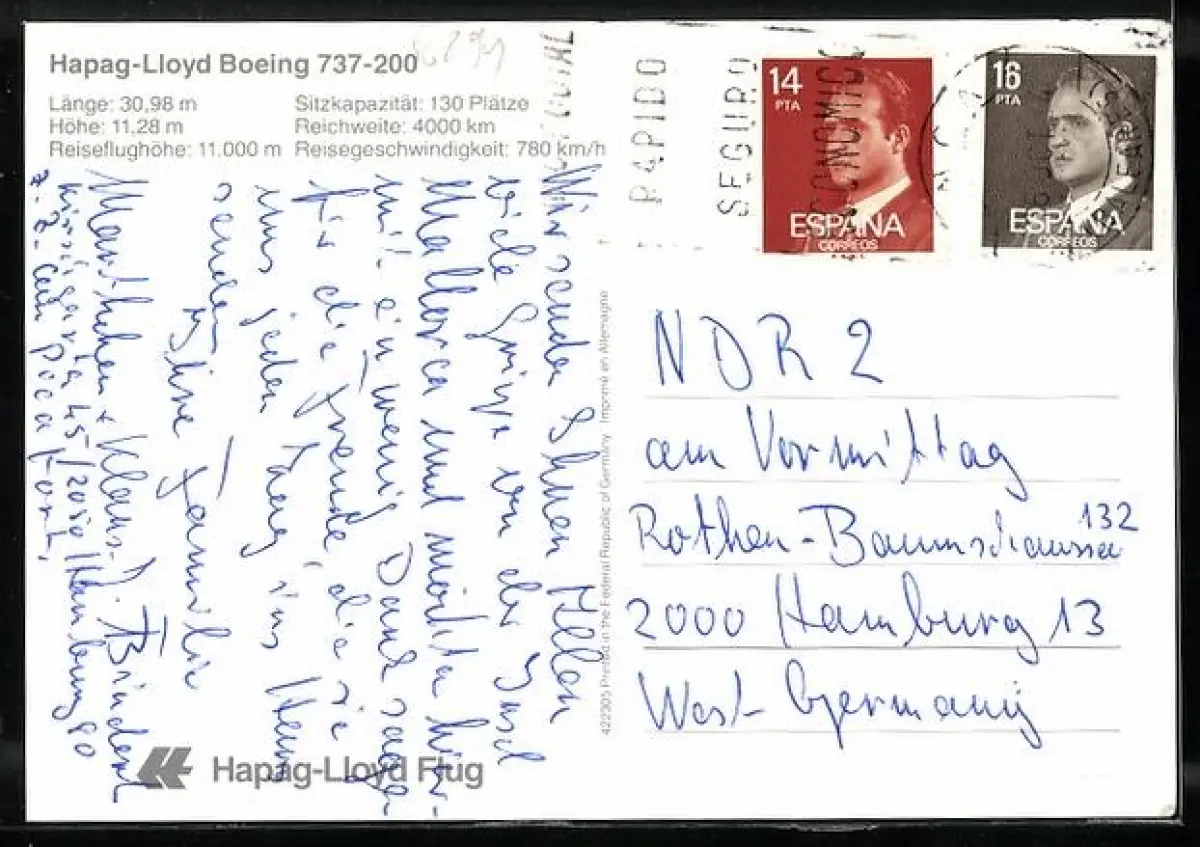 Hapag-Lloyd Boeing 737-200
Länge: 30,98 m
Höhe: 11,28 m
Reiseflughöhe: 11.000 m
Sitzkapazität: 130 Plätze
Reichweite: 4000 km
Reisegeschwindigkeit: 780 km/h
RAPIDO
SEGURO
ECONOMICO
14
PTA
ESPAÑA
CORREOS
16
PTA
ESPAÑA
CORREOS
Wir senden Ihnen Allen
viele Grüße von der Insel
Mallorca und möchten hier-
mit ein wenig Dank sagen
für die Freude, die sie
uns jeden Tag ins Haus
senden
Ihre Familie
Klaus
Hamburg 80
z. Z. Cala
422305 Printed in the Federal Republic of Germany Imprimé en Allemagne
NDR 2
am Vormittag
Rothen-Baumschaussee 132
2000 Hamburg 13
West-Germany
Hapag-Lloyd Flug